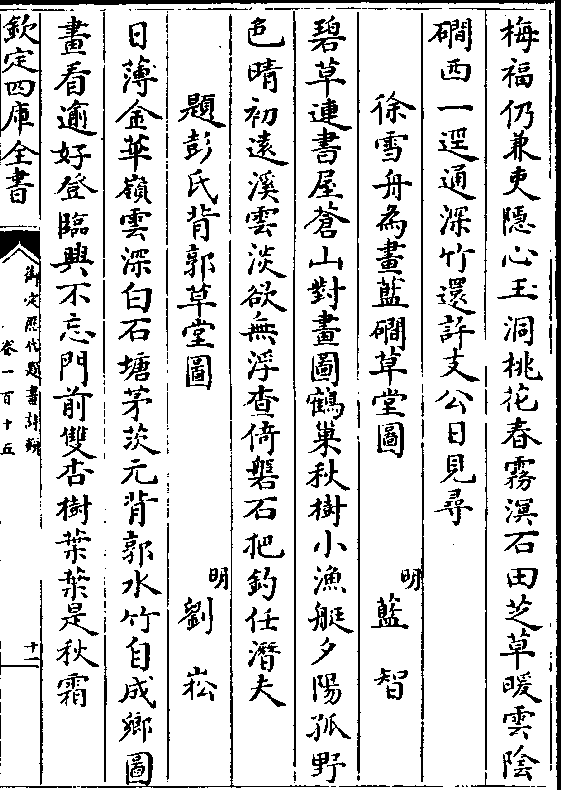 梅福仍兼吏隠心玉洞桃花春霧溟石田芝草暖雲陰
磵西一逕通深竹還許支公日見尋
徐雪舟為畫藍磵草堂圖 明 藍智
碧草連書屋蒼山對畫圖鶴巢秋樹小漁艇夕陽孤野
色晴初遠溪雲淡欲無浮查倚磐石把釣任潛夫
題彭氏背郭草堂圖 明 劉崧
日薄金華嶺雲深白石塘茅茨元背郭水竹自成鄉圖
畫看逾好登臨興不忘門前雙杏樹葉葉是秋霜
欽定四庫全書
御定歴代題畫詩類
卷一百十五
十一